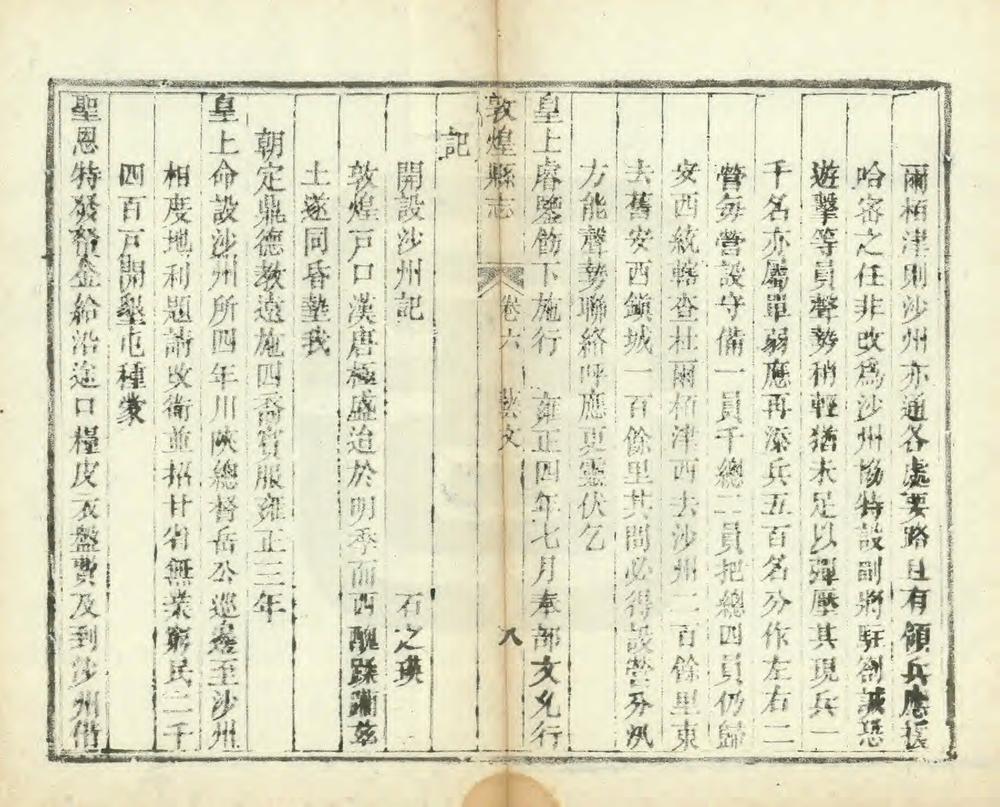 爾栢津則沙州亦通各處要路且有領兵應援
哈密之任非改爲沙州協特設副將駐劄誠恐
遊擊等員聲勢稍輕猶未足以彈壓其現兵一
千名亦屬單弱應再添兵五百名分作左右二
營每營設守備一員千總二員把總四員仍歸
安西統轄查杜爾栢津西去沙州二百餘里東
去舊安西鎮城一百餘里其間必得設營分汛
方能聲勢聯絡呼應更靈伏乞
皇上睿鑒飭下施行 雍正四年七月奉部文允行
敦煌縣志 卷六 藝文 八
記
開設沙州記 石之瑛
敦煌戸口漢唐極盛迨於明季而西醜蹂躪兹
土遂同昏墊我
朝定鼎德教遠施四裔賓服雍正三年
皇上命設沙州所四年川陝總督岳公巡邊至沙州
相度地利題請改衛並招甘省無業窮民二千
四百戸開墾屯種蒙
聖恩特發帑金給沿途口糧皮衣盤費及到沙州借